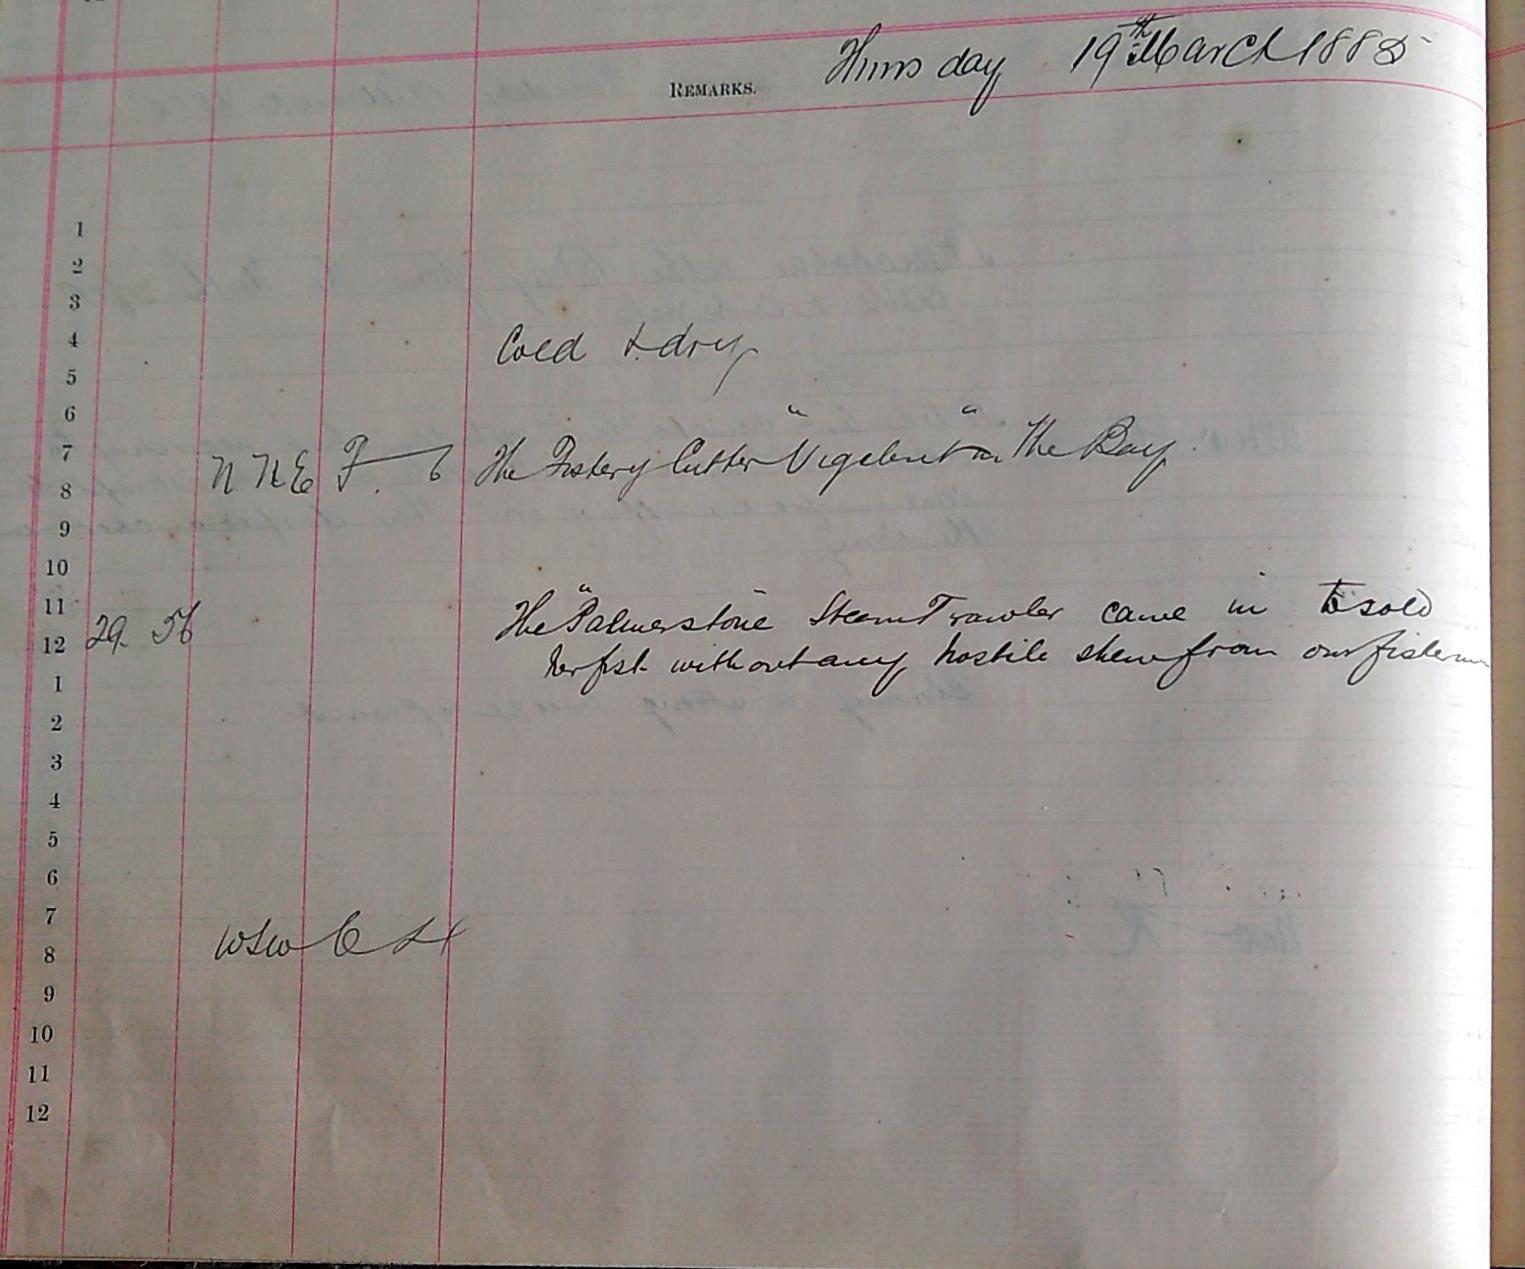 Thursday 19th March 1885
REMARKS.
1
2
3
4
Cold & dry
5
6
7
N N E F. 6 The Fishery Cutter "Vigelent" in the Bay.
8
9
10
11
The "Palmerstone" Steam Trawler came in to sold
12 29. 56
her fish without any hostile shew from our fishermen
1
2
3
4
5
6
7
WSW C
8
9
10
11
12